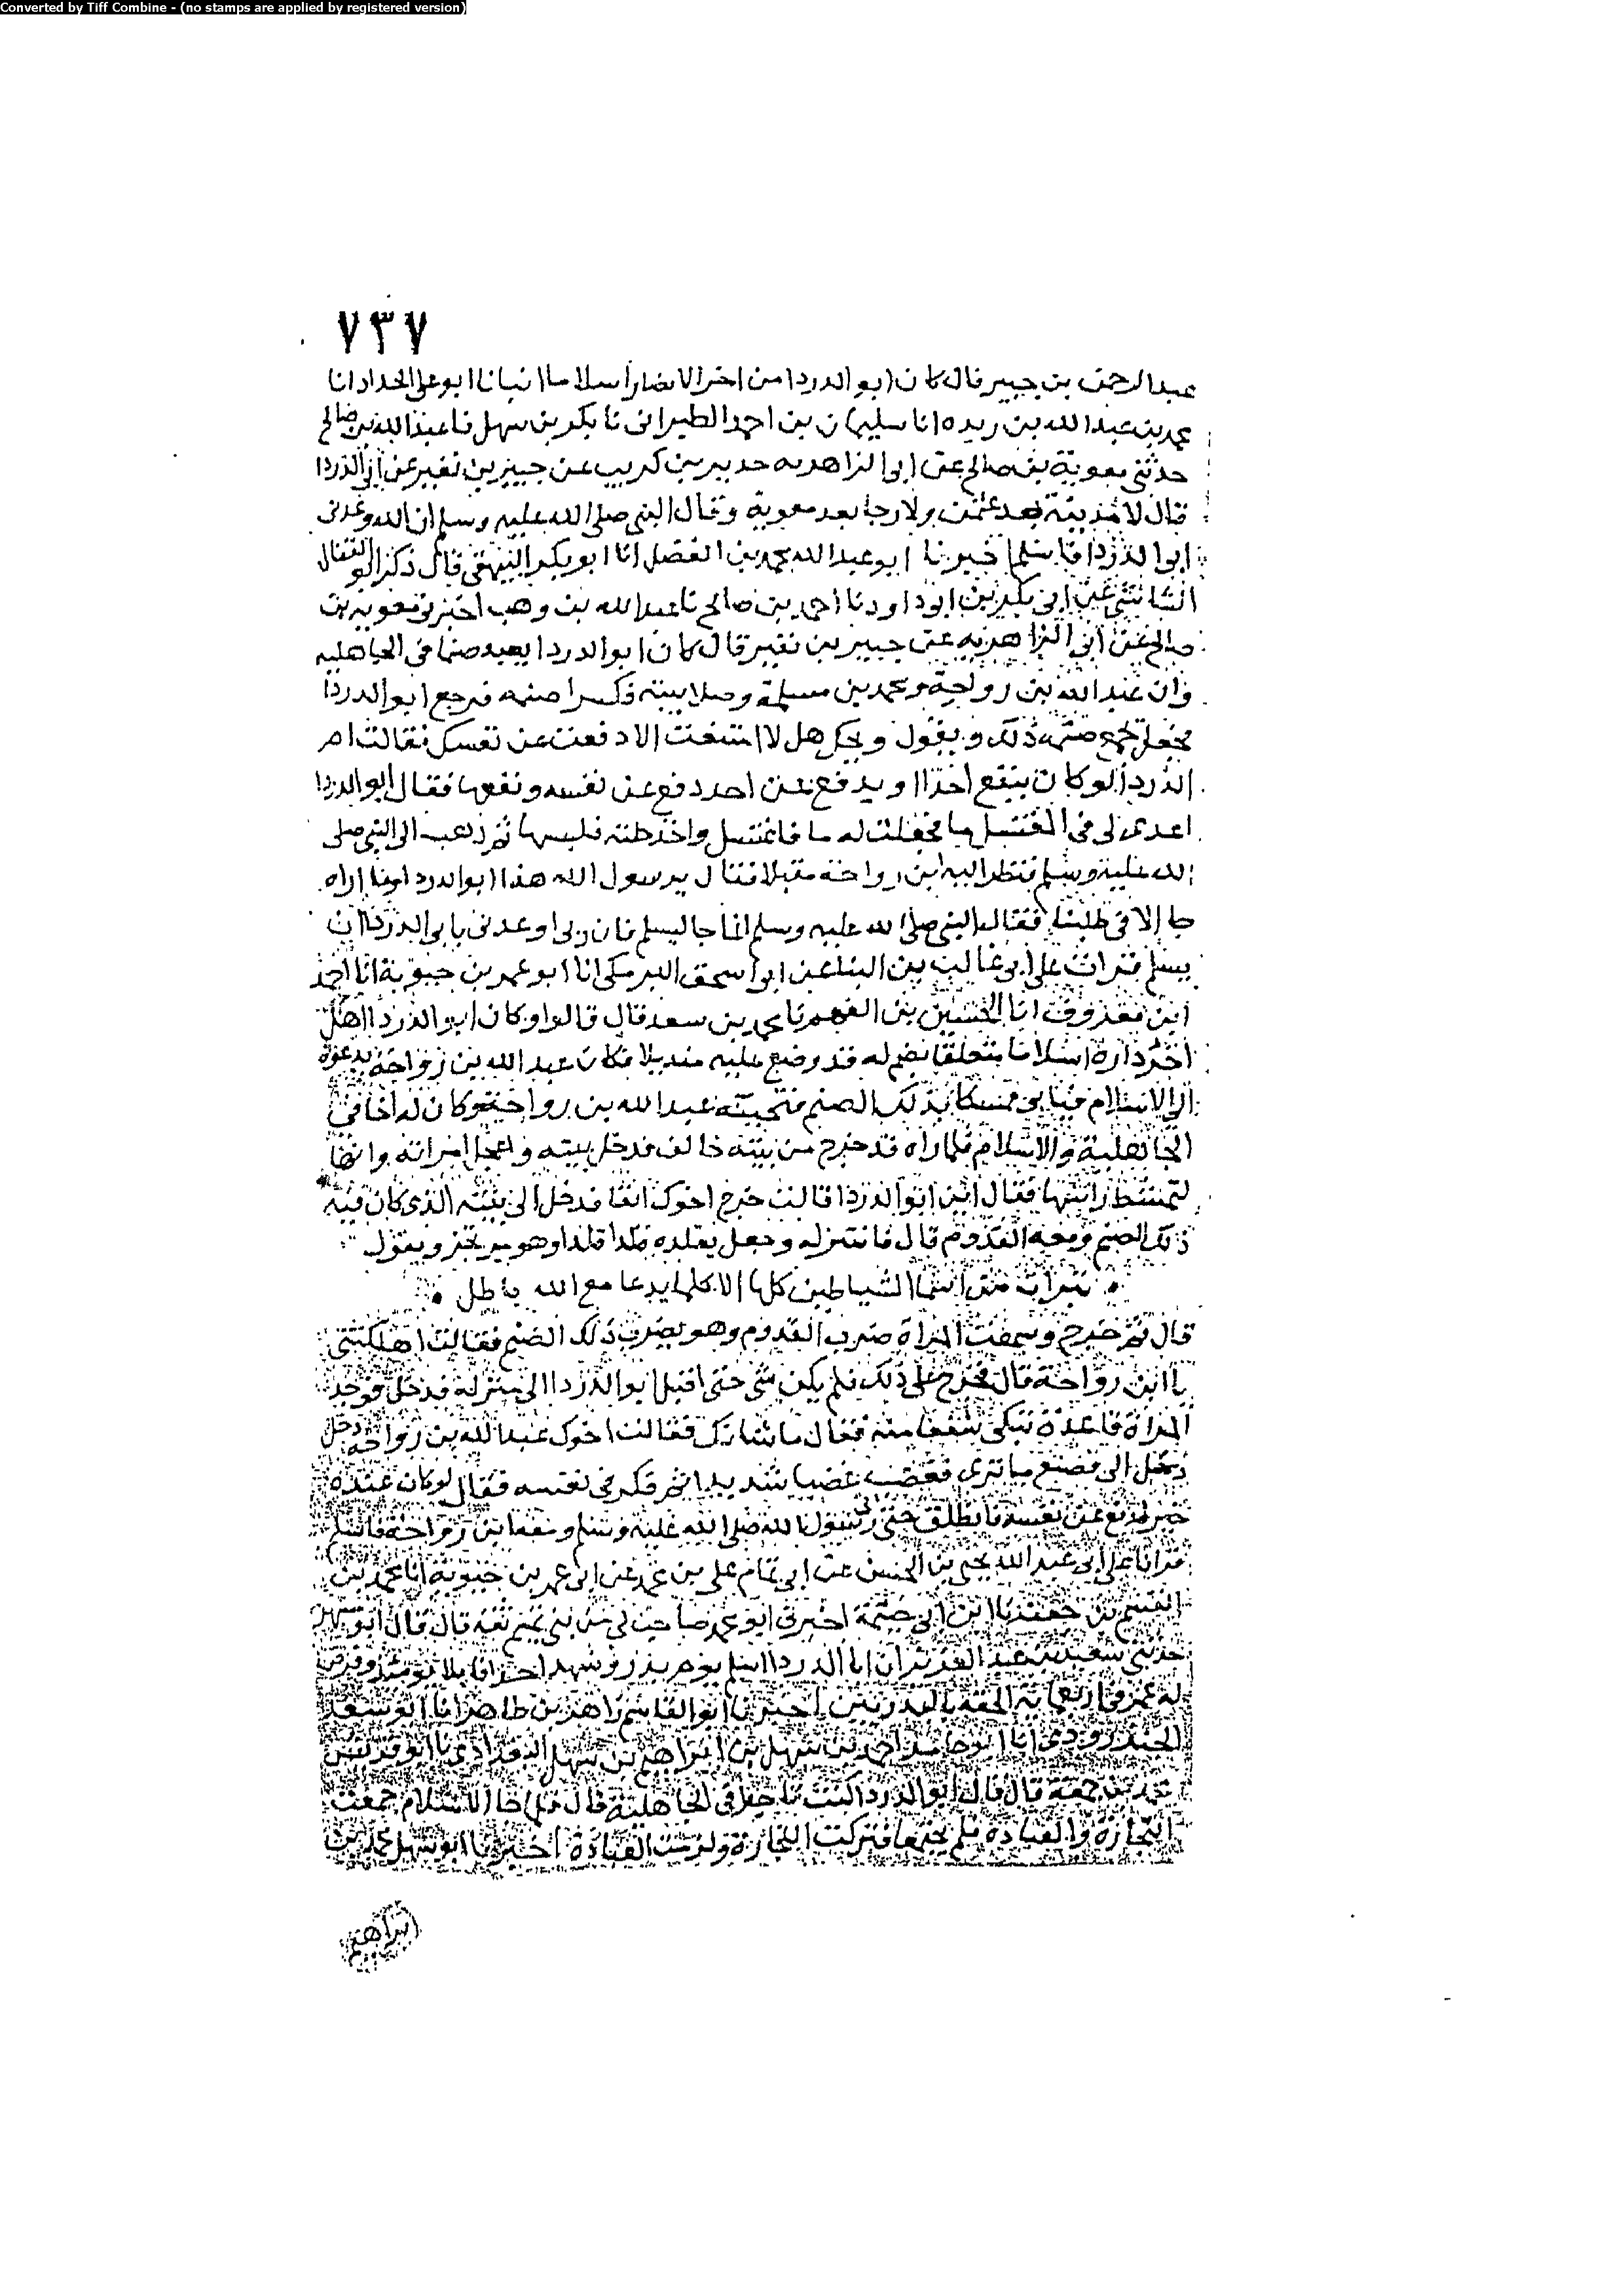 Converted by Tiff Combine - (no stamps are applied by registered version)
٧٣٧
عبد الرحمن بن جبير قال كان ابو الدردا من اخر الانصار اسلاما انبانا ابو علي الحداد انا
محمد بن عبد الله بن ريده انا سليمان بن احمد الطبراني نا بكر بن سهل نا عبد الله بن صالح
حدثني معوية بن صالح عن ابي الزاهريه حدير بن كريب عن جبير بن نفير عن ابي الدردا
قال لا مدينة بعد عثمن ولا رجا بعد معوية وقال النبي صلى الله عليه وسلم ان الله وعدني
ابو الدردا فاسلم اخبرنا ابو عبد الله محمد بن الفضل انا ابو بكر البيهقي قال ذكر ابو القفال
الشاشي عن ابي بكر بن ابي داود نا احمد بن صالح نا عبد الله بن وهب اخبرني معوية بن
صالح عن ابي الزاهريه عن جبير بن نفير قال كان ابو الدردا يعبد صنما في الجاهليه
وان عبد الله بن رواحة ومحمد بن مسلمة دخلا بيته فكسرا صنمه فرجع ابو الدردا
فجعل يجمع صنمه ذلك ويقول ويحك هلا امتنعت الا دفعت عن نفسك فقالت ام
الدردا لو كان ينفع احدا او يدفع عن احد دفع عن نفسه ونفعها فقال ابو الدردا
اعدي لي في المغتسل ما فجعلت له ما فاغتسل واخذ حلته فلبسها ثم ذهب الى النبي صلى
الله عليه وسلم فنظر اليه ابن رواحة مقبلا فقال يرسول الله هذا ابو الدردا وما اراه
جا الا في طلبنا فقال النبي صلى الله عليه وسلم انما جا ليسلم فان ربي وعدني بابي الدردا ان
يسلم قرات على ابي غالب بن البنا عن ابي اسحق البرمكي انا ابو عمر بن حيوية انا احمد
ابن معروف انا الحسين بن الفهم نا محمد بن سعد قال قالوا وكان ابو الدردا اهل
اخر داره اسلاما متعلقا بصنم له قد وضع عليه منديلا فكان عبد الله بن رواحة يدعوه
الى الاسلام فيابى ممسكا بذلك الصنم فتحينه عبد الله بن رواحة وكان له اخا في
الجاهلية والاسلام فلما راه قد خرج من بيته خالف فدخل بيته واعجل امراته وانها
لتمشط راسها فقال اين ابو الدردا قالت خرج اخوك انفا فدخل الى بيته الذي كان فيه
ذلك الصنم ومعه القدوم قال فانتزله وجعل يفلده فلذا فلذا وهو يرتجز ويقول
تبرات من اسما الشياطين كلها الا كلما يدعا مع الله باطل
قال ثم خرج وسمعت المراة ضرب القدوم وهو يضرب ذلك الصنم فقالت اهلكتني
يا ابن رواحة قال فخرج على ذلك فلم يكن شي حتى اقبل ابو الدردا الى منزله فدخل فوجد
المراة قاعدة تبكي شفقا منه فقال ما شانك فقالت اخوك عبد الله بن رواحه دخل
دخل الى فصنع ما ترى فغضب غضبا شديدا ثم فكر في نفسه فقال لو كان عنده
خير لدفع عن نفسه فانطلق حتى اتى رسول الله صلى الله عليه وسلم ومعه ابن رواحة فاسلم
قرانا على ابي عبد الله يحيى بن الحسن عن ابي تمام علي بن محمد عن ابي عمر بن حيوية انا محمد بن
القسم بن جعفر نا ابن ابي خيثمة اخبرني ابو محمد صاحب لي من بني تميم ثقة قال قال ابو مسهر
حدثني سعيد بن عبد العزيز ان ابا الدردا اسلم يوم بدر وشهد احدا وابلا يومئذ وفرض
له عمر في اربعماية الحقه بالبدريين اخبرنا ابو القاسم زاهر بن طاهر انا ابو سعد
الجنزرودي انا ابو حامد احمد بن سهل بن ابراهيم بن سهل نا ابو قريش
محمد بن جمعة قال قال ابو الدردا كنت تاجرا في الجاهلية قال فلما جا الاسلام جمعت
التجارة والعبادة فلم يجتمعا فتركت التجارة ولزمت العبادة اخبرنا ابو سهل محمد بن
ابراهيم